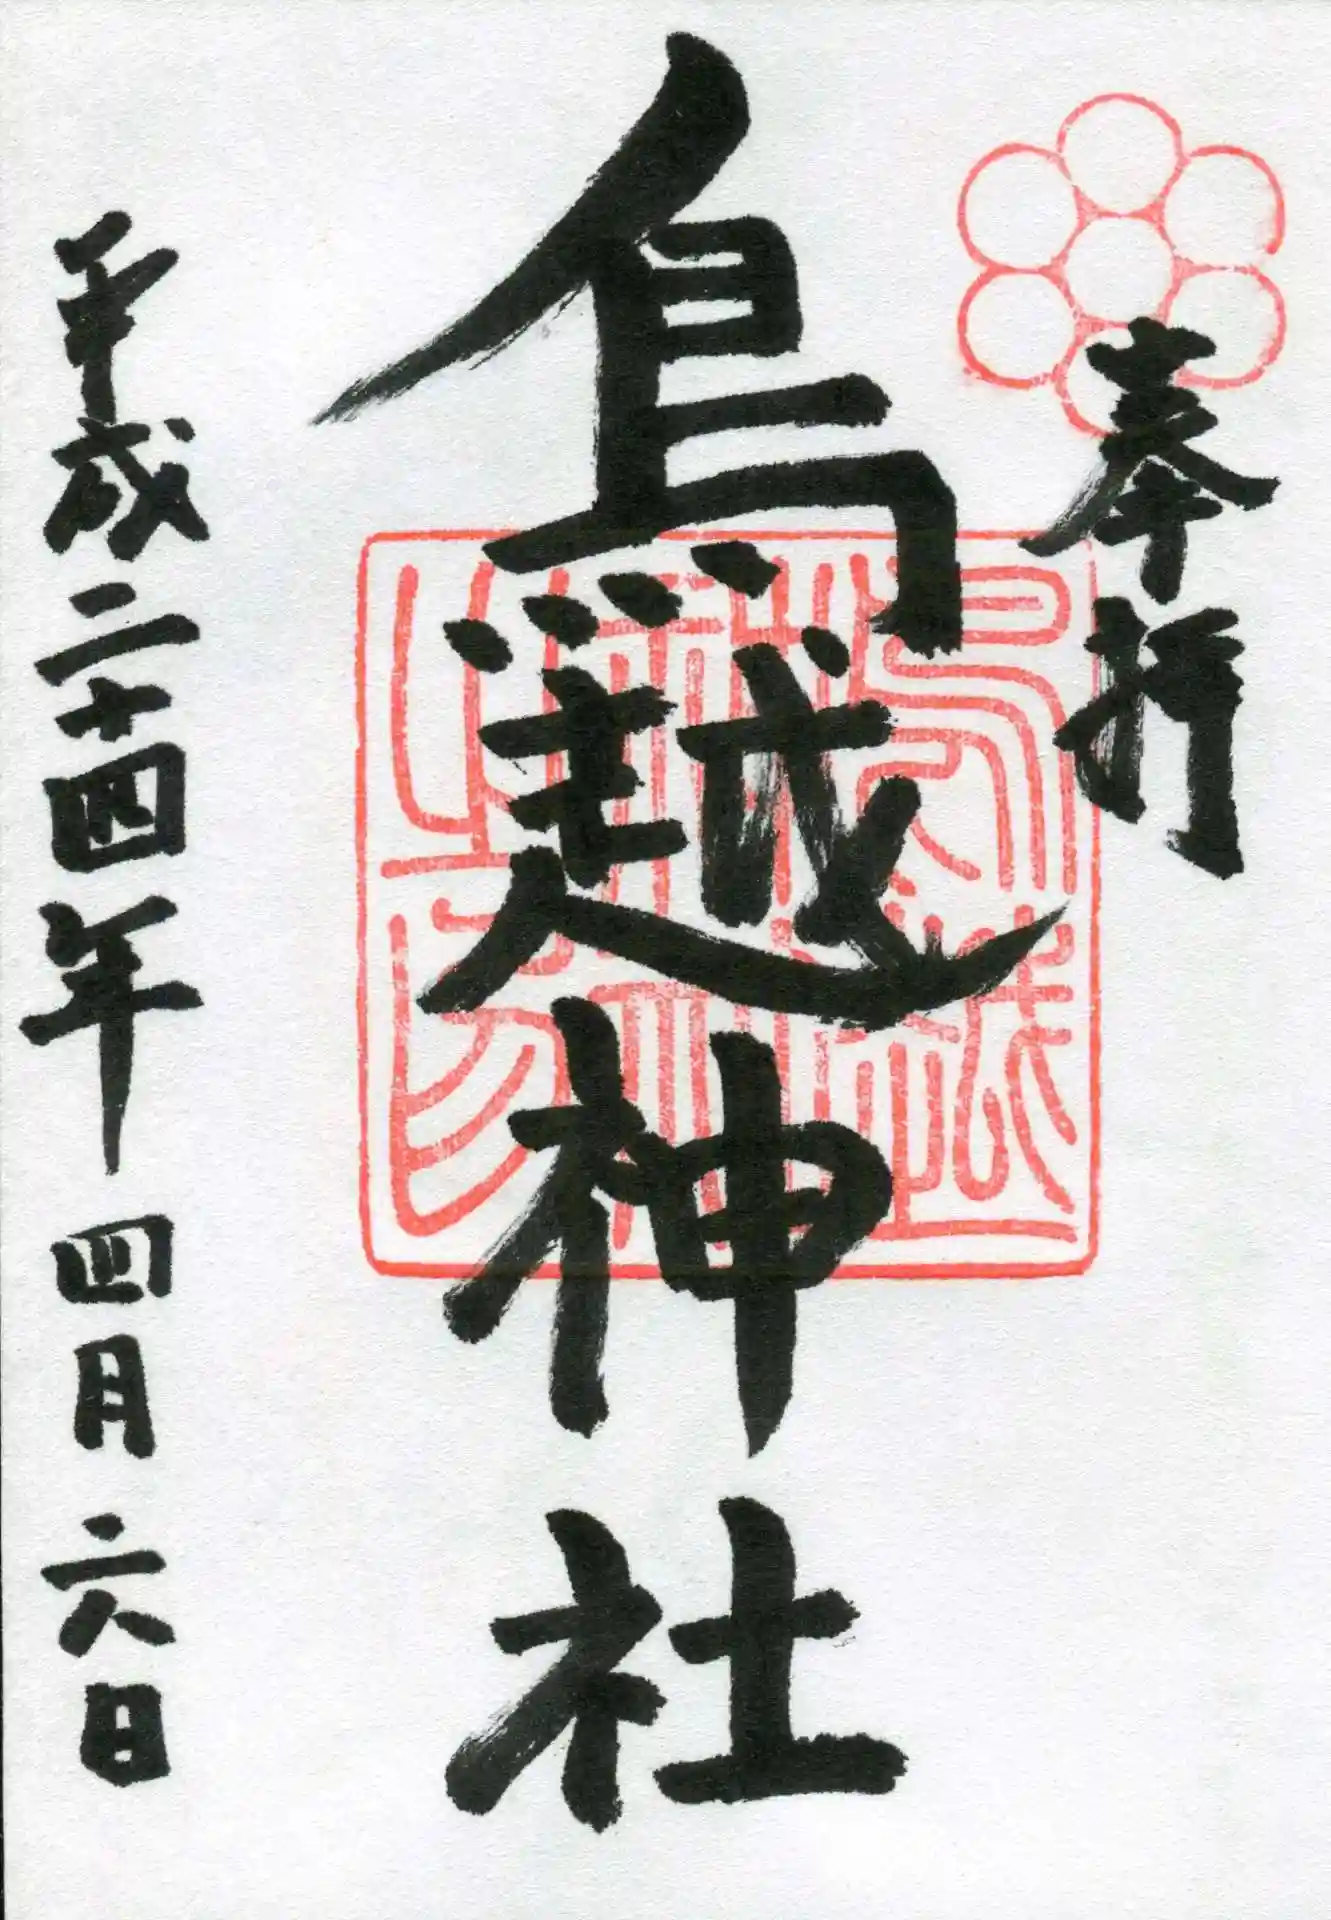 奉拝
鳥越神社
鳥越
神社
之印
平成二十四年四月六日